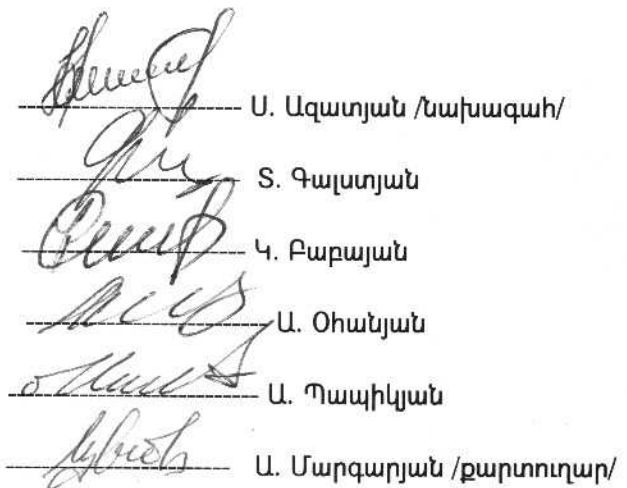 Ս. Ազատյան /նախագահ/
Տ. Գալստյան
Կ. Բաբայան
Ա. Օհանյան
Ա. Պապիկյան
Ա. Մարգարյան /քարտուղար/